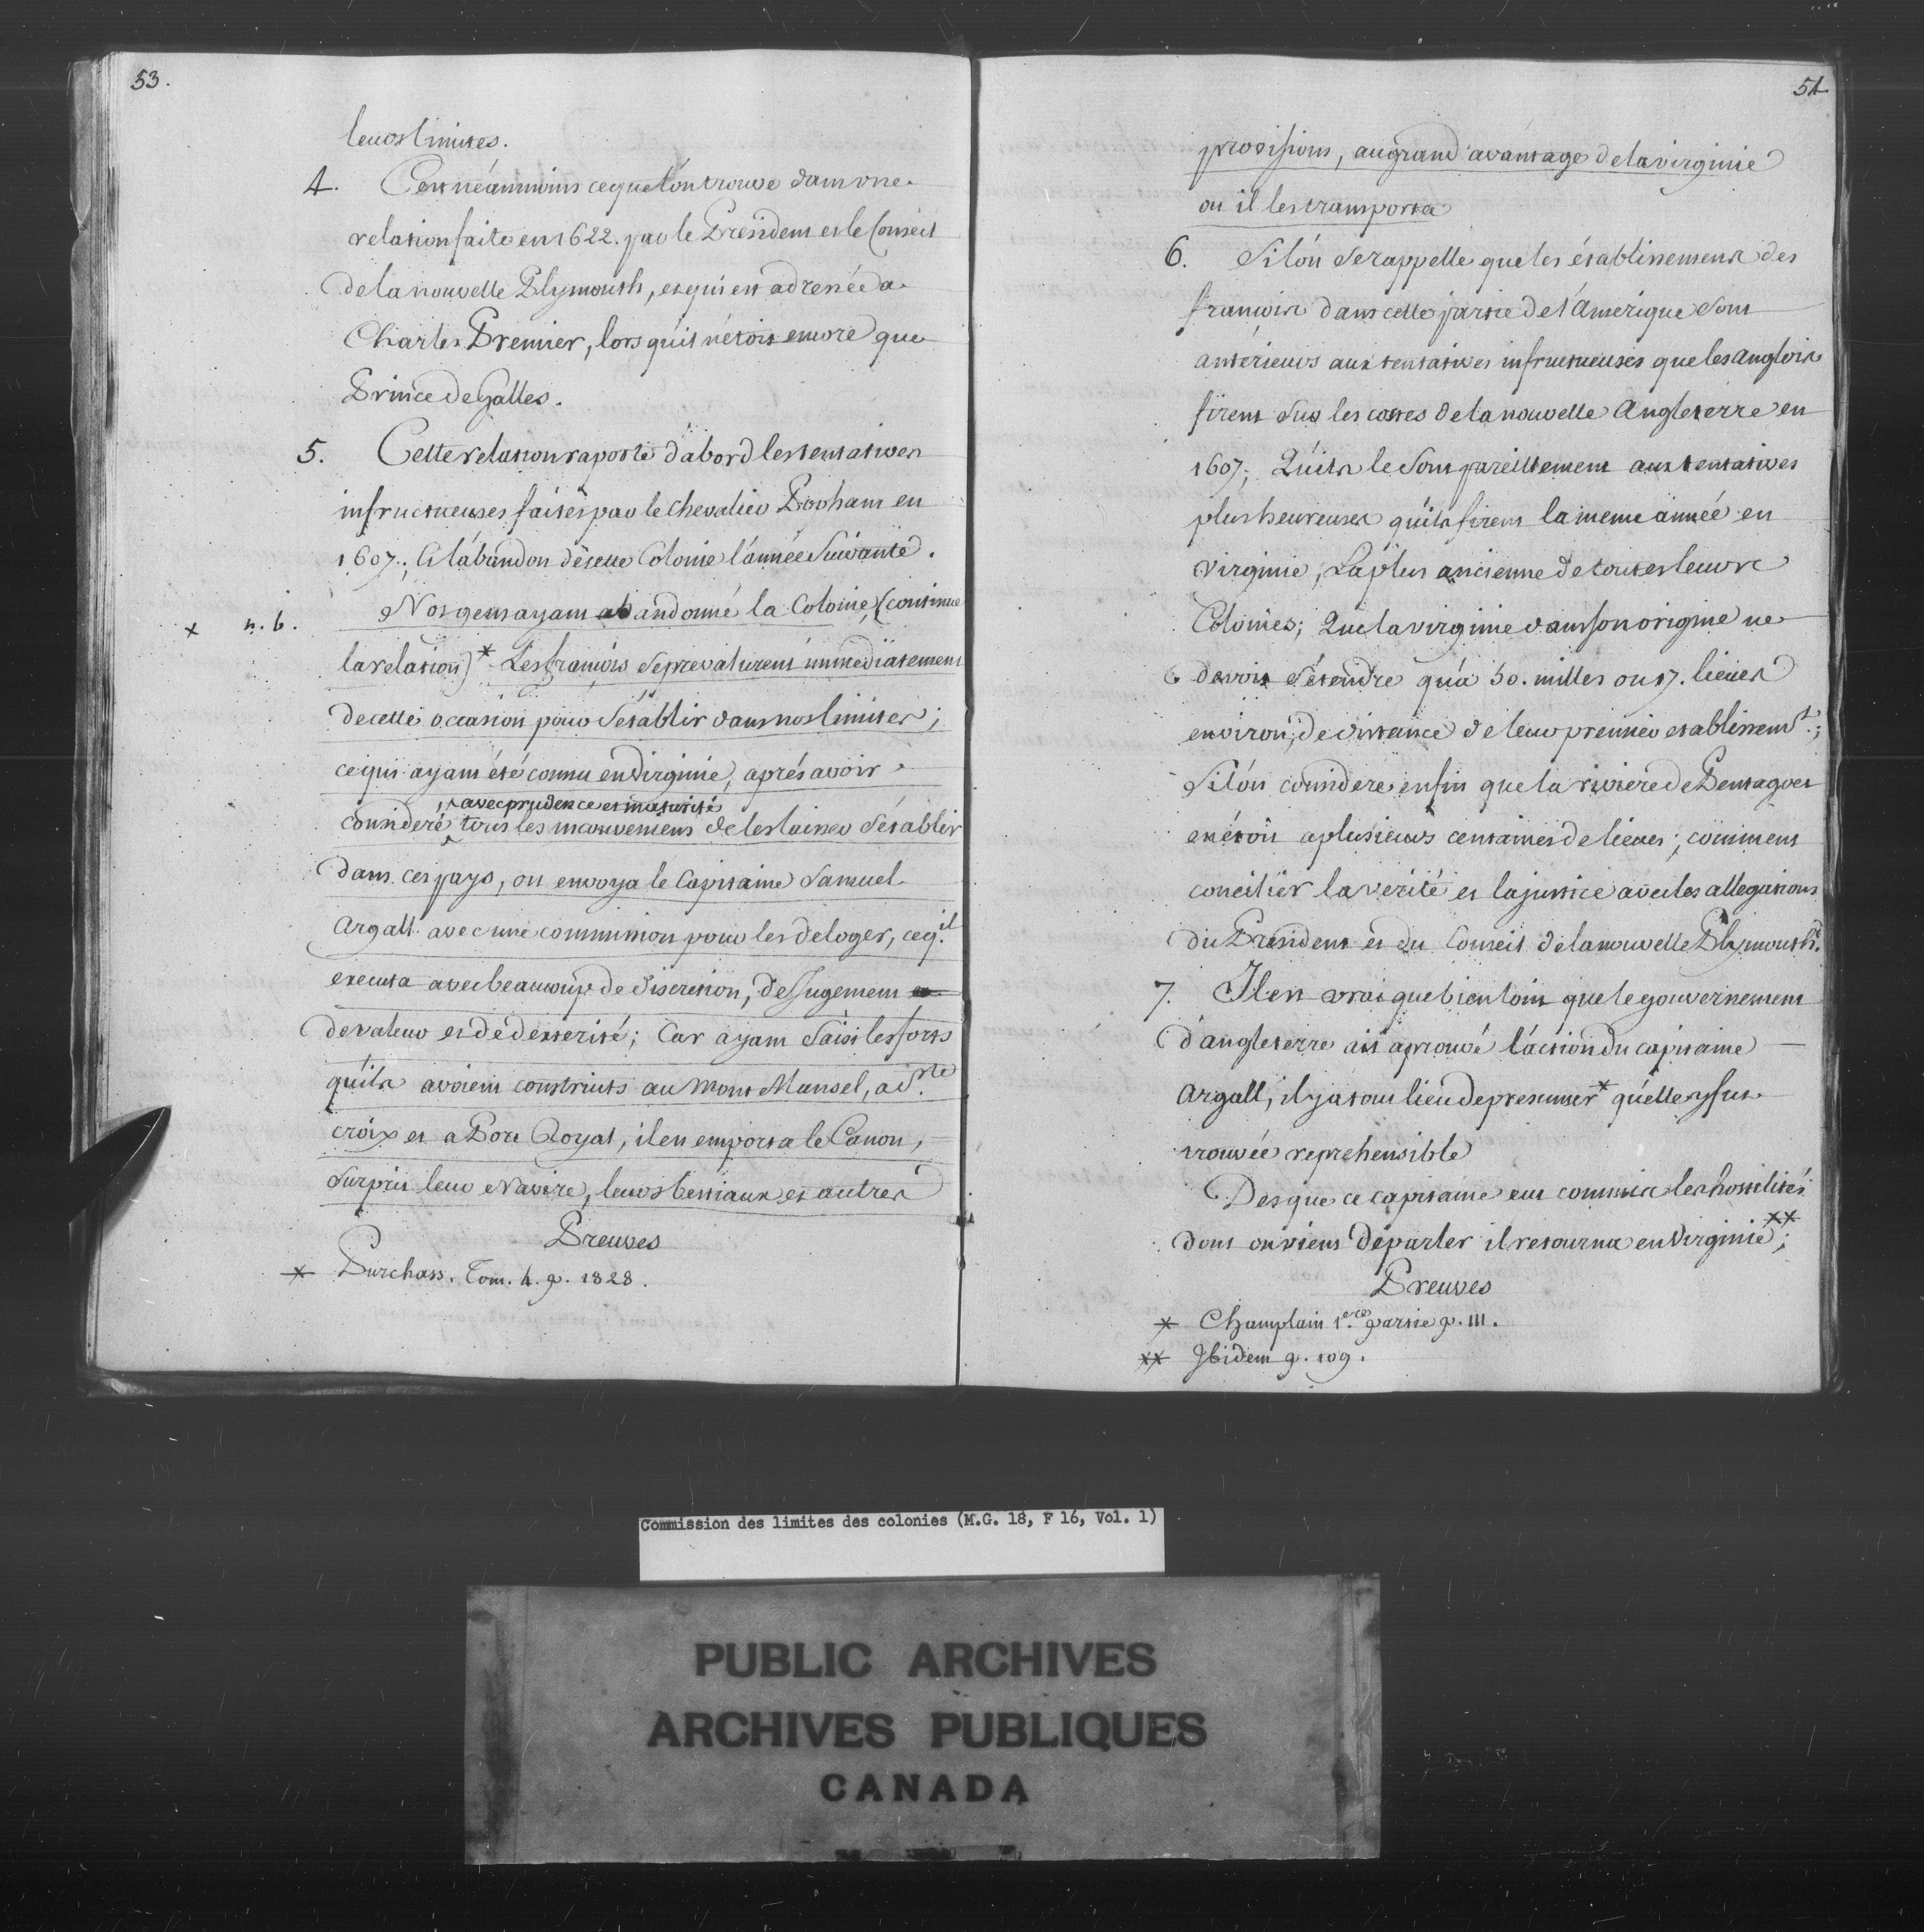 53.
leurs limites.
4. C'est néanmoins ce que l'on trouve dans une
relation faite en 1622. par le Président et le Conseil
de la nouvelle Plymouth, et qui est adressée a
Charles Premier, lors qu'il n'étoit encore que
Prince de Galles.
5. Cette relation raporte d'abord les tentatives
infructueuses faites par le Chevalier Popham en
1607; et l'abandon de cette Colonie l'année Suivante.
x n. 6. Nos gens ayant abandonné la Colonie, (continue
la relation) * Les françois Se prevalurent immédiatement
de cette occasion pour S'établir dans nos limites;
ce qui ayant été connu en Virginie, aprés avoir
avec prudence et maturité
consideré tous les inconveniens de les laisser S'établir
dans ces pays, on envoya le Capitaine Samuel
Argall avec une commission pour les deloger, ce q.il
executa avec beaucoup de discretion, de Jugement et
de valeur et de dexterité; Car ayant Saisi les forts
qu'ils avoient construits au Mont Mansel, a S.te
croix et a Port Royal, il en emporta le Canon,
Surprit leur Navire, leurs bestiaux et autres
Preuves
* Purchass. Tom. 4. p. 1828.
54
provisions, au grand avantage de la virginie
ou il les transporta
6. Si l'on Se rappelle que les établissements des
françois dans cette partie de l'Amerique Sont
antérieurs aux tentatives infructueuses que les anglois
firent Sur les costes de la nouvelle Angleterre en
1607; Qu'ils le Sont pareillement aux tentatives
plus heureuses qu'ils firent la meme année en
Virginie, La plus ancienne de toutes leurs
Colonies; Que la virginie dans son origine ne
devoit S'étendre qu'a 50. milles ou 17. lieues
environ, de distance de leur premier etablissem.t;
Si l'on considere enfin que la riviere de Pentagoet
en étoit a plusieurs centaines de lieues; comment
concilier la verité et la justice avec les allegations
du President et du Conseil de la nouvelle Plymouth?
7. Il est vrai que bien loin que le gouvernement
d'angleterre ait aprouvé l'action du capitaine
Argall, il y a tout lieu de presumer * qu'elle y fut
trouvée reprehensible
Des que ce capitaine eut commis les hostilités
dont on vient de parler il retourna en Virginie **;
Preuves
* Champlain 1.ere partie p. 111.
** Ibidem p. 109.
Commission des limites des colonies (M.G. 18, F 16, Vol. 1)
PUBLIC ARCHIVES
ARCHIVES PUBLIQUES
CANADA